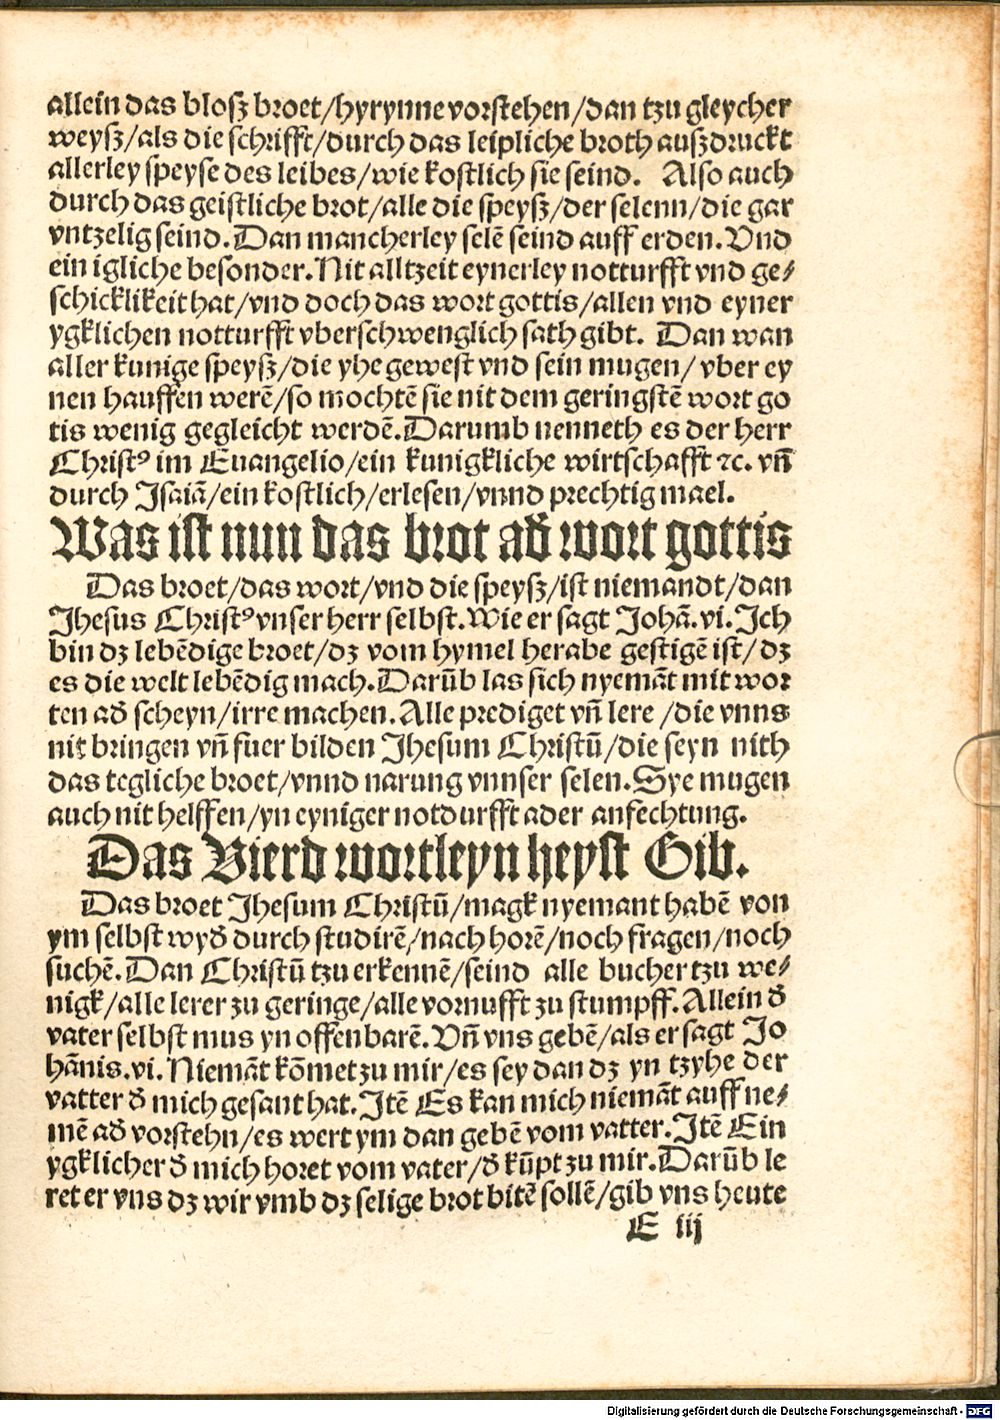 allein das blosz broet/hyrynne vorstehen/dan tzu gleycher
weysz/als die schrifft/durch das leipliche broth auszdruckt
allerley speyse des leibes/wie kostlich sie seind. Also auch
durch das geistliche brot/alle die speysz/der selenn/die gar
vntzelig seind. Dan mancherley selē seind auff erden. Vnd
ein igliche besonder. Nit alltzeit eynerley notturfft vnd ge⸗
schicklikeit hat/vnd doch das wort gottis/allen vnd eyner
ygklichen notturfft vberschwenglich sath gibt. Dan wan
aller kunige speysz/die yhe gewest vnd sein mugen/ vber ey
nen hauffen werē/so mochtē sie nit dem geringstē wort go
tis wenig gegleicht werdē. Darumb nenneth es der herr
Christꝰ im Euangelio/ein kunigkliche wirtschafft ꝛc. vn̄
durch Jsaiā/ein kostlich/erlesen/vnnd prechtig mael.
Was ist nun das brot ad̄ wort gottis
Das broet/das wort/vnd die speysz/ist niemandt/dan
Jhesus Christꝰ vnser herr selbst. Wie er sagt Johā. vi. Jch
bin dz lebēdige broet/dz vom hymel herabe gestigē ist/dz
es die welt lebēdig mach. Darūb las sich nyemāt mit wor
ten ad̄ scheyn/irre machen. Alle prediget vn̄ lere /die vnns
nit bringen vn̄ fuer bilden Jhesum Christū/die seyn nith
das tegliche broet/vnnd narung vnnser selen. Sye mugen
auch nit helffen/yn eyniger notdurfft ader anfechtung.
Das Vierd wortleyn heyst Gib.
Das broet Jhesum Christū/magk nyemant habē von
ym selbst wyd̄ durch studirē/nach horē/noch fragen/noch
suchē. Dan Christū tzu erkennē/seind alle bucher tzu we⸗
nigk/alle lerer zu geringe/alle vornufft zu stumpff. Allein d̄
vater selbst mus yn offenbarē. Vn̄ vns gebē/als er sagt Jo
hānis. vi. Niemāt kōmet zu mir/es sey dan dz yn tzyhe der
vatter d̄ mich gesant hat. Jtē Es kan mich niemāt auff ne⸗
mē ad̄ vorstehn/es wert ym dan gebē vom vatter. Jtē Ein
ygklicher d̄ mich horet vom vater/d̄ kūpt zu mir. Darūb le
ret er vns dz wir vmb dz selige brot bitē sollē/gib vns heute
E iij
Digitalisierung gefördert durch die Deutsche Forschungsgemeinschaft - DFG